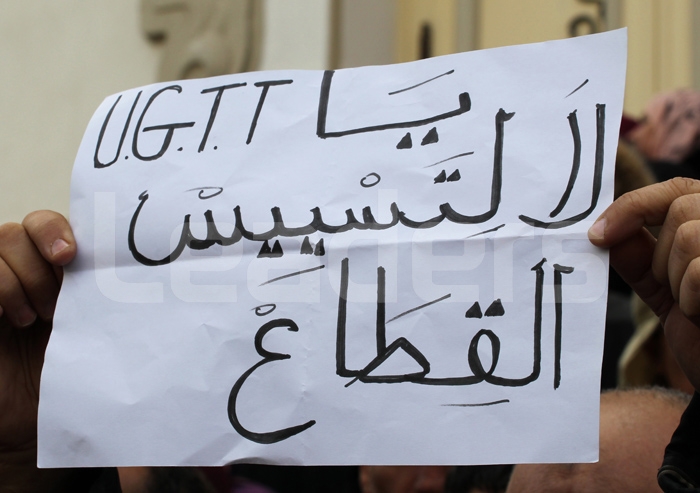 يَا U.G.T.T
لَا لِتَسْيِيسْ
القِطَاعْ
Leaders